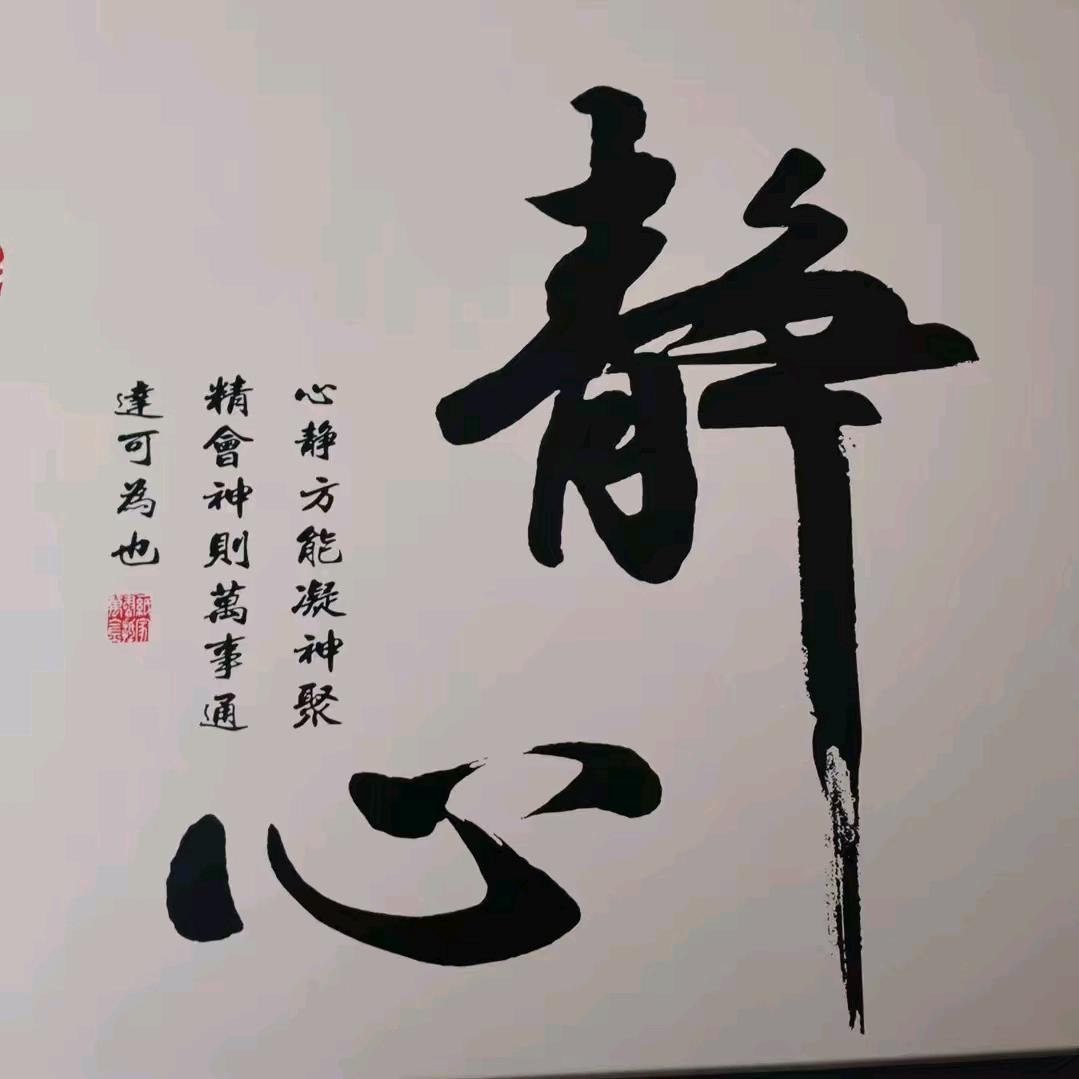 静
心
心静方能凝神聚
精會神則萬事通
達可為也